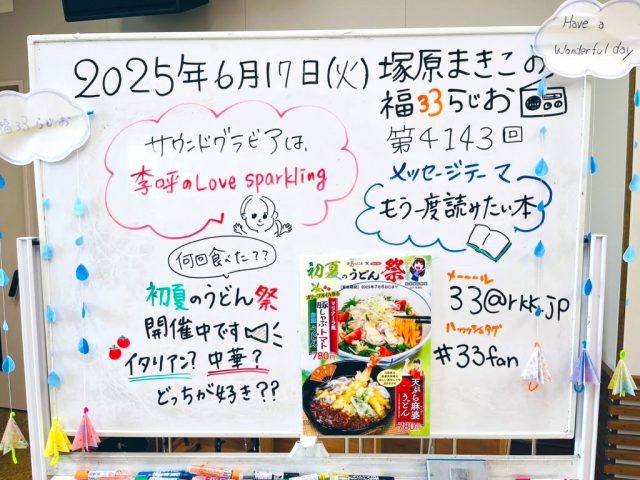 Have a
Wonderful day
2025年6月17日(火)
塚原まきこの
福33らじお
第4143回
福33らじお
サウンドグラビアは、
李呼のLove sparkling
メッセージテーマ
もう一度読みたい本
何回食べた??
初夏のうどん祭
開催中です
イタリアン? 中華?
どっちが好き??
初夏のうどん祭
豚しゃぶトマト
780円
天ぷら麻婆
うどん
780円
メーール
33@rkk.jp
ハッシュタグ
#33fan